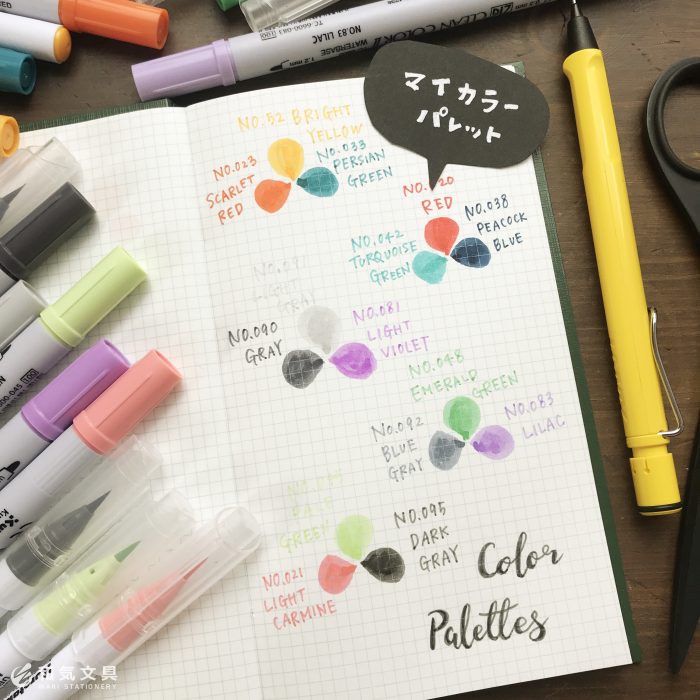 NO.83 LILAC
TC-6000-083
WATERBASE
ZIG CLEAN COLOR II
1.2 mm
マイカラー
パレット
NO.52 BRIGHT
YELLOW
NO.033
PERSIAN
GREEN
NO.023
SCARLET
RED
RED
NO.038
PEACOCK
BLUE
NO.042
TURQUOISE
GREEN
NO.090
GRAY
NO.081
LIGHT
VIOLET
NO.048
EMERALD
GREEN
NO.092
BLUE
GRAY
NO.083
LILAC
NO.095
DARK
GRAY
NO.021
LIGHT
CARMINE
Color
Palettes
和気文具
WAKI STATIONERY